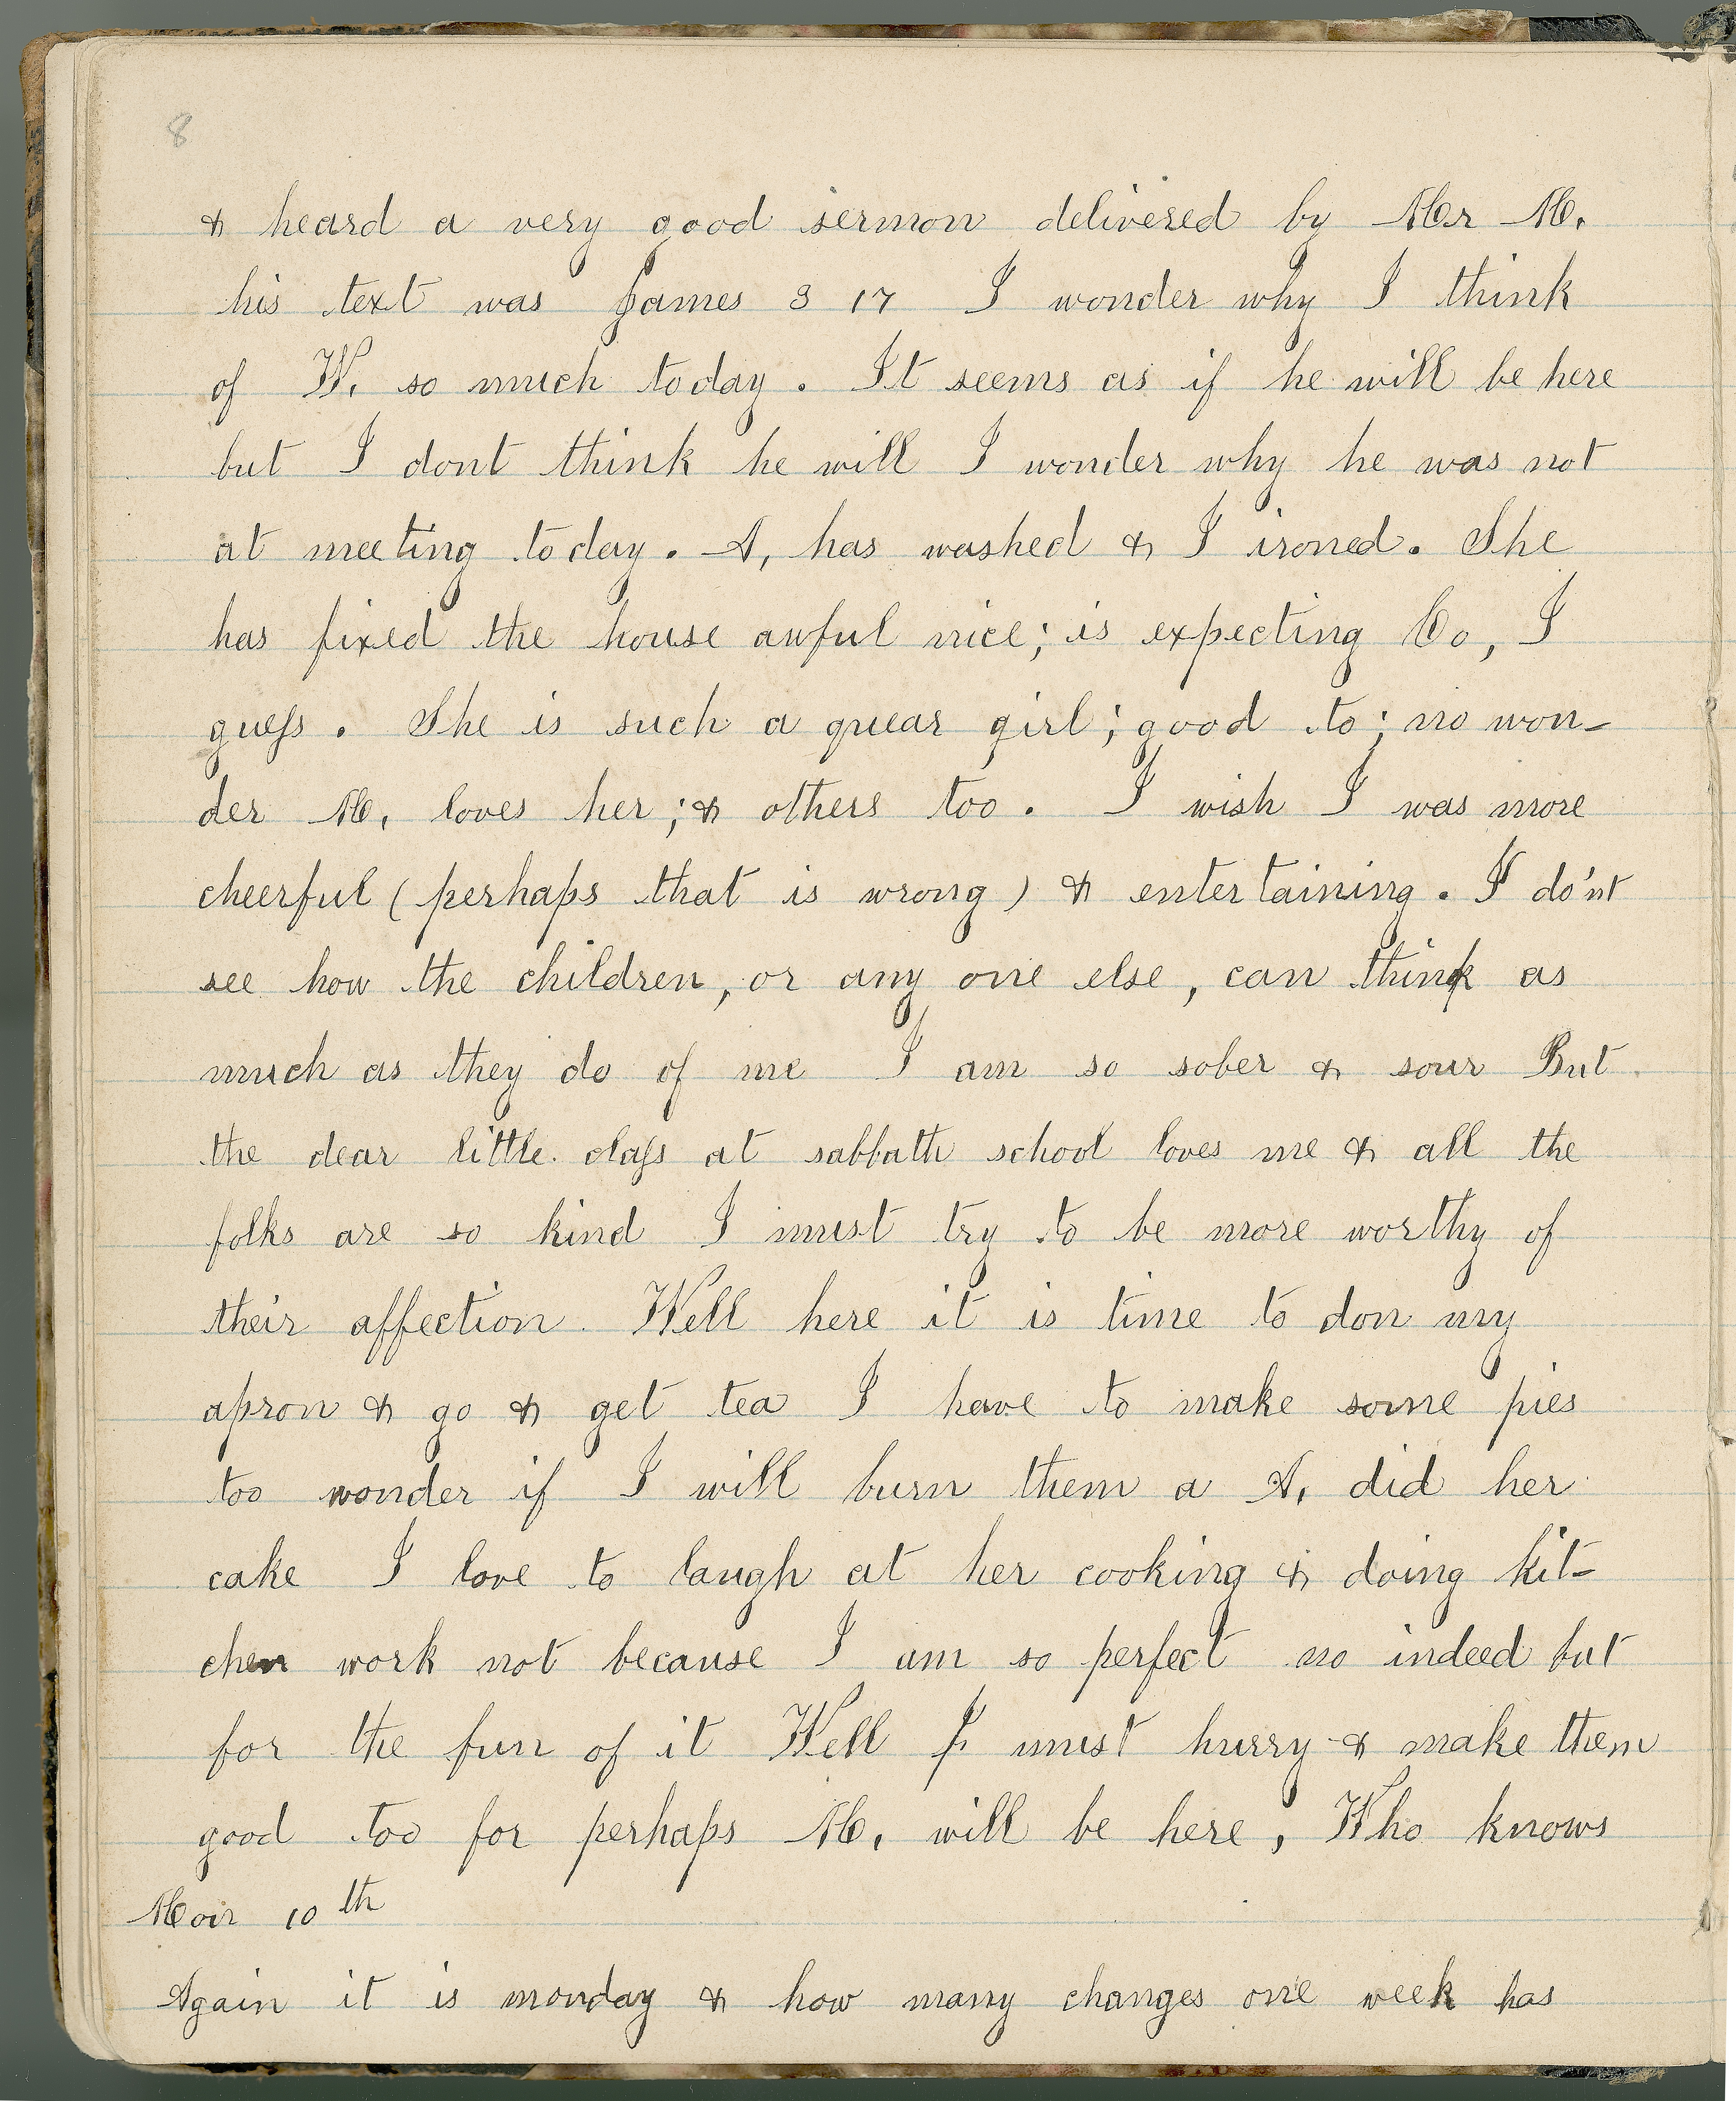 8
& heard a very good sermon delivered by Mr M.
his text was James 3 17 I wonder why I think
of W. so much today. It seems as if he will be here
but I dont think he will I wonder why he was not
at meeting today. A, has washed & I ironed. She
has fixed the house awful nice; is expecting Co, I
guess. She is such a quear girl; good to; no won-
der M, loves her; & others too. I wish I was more
cheerful (perhaps that is wrong) & entertaining. I do'nt
see how the children, or any one else, can think as
much as they do of me I am so sober & sour But
the dear little class at sabbath school loves me & all the
folks are so kind I must try to be more worthy of
their affection. Well here it is time to don my
apron & go & get tea I have to make some pies
too wonder if I will burn them a A, did her
cake I love to laugh at her cooking & doing kit-
chen work not because I am so perfect no indeed but
for the fun of it Well I must hurry & make them
good too for perhaps M, will be here, Who knows
Mon 10th
Again it is monday & how many changes one week has